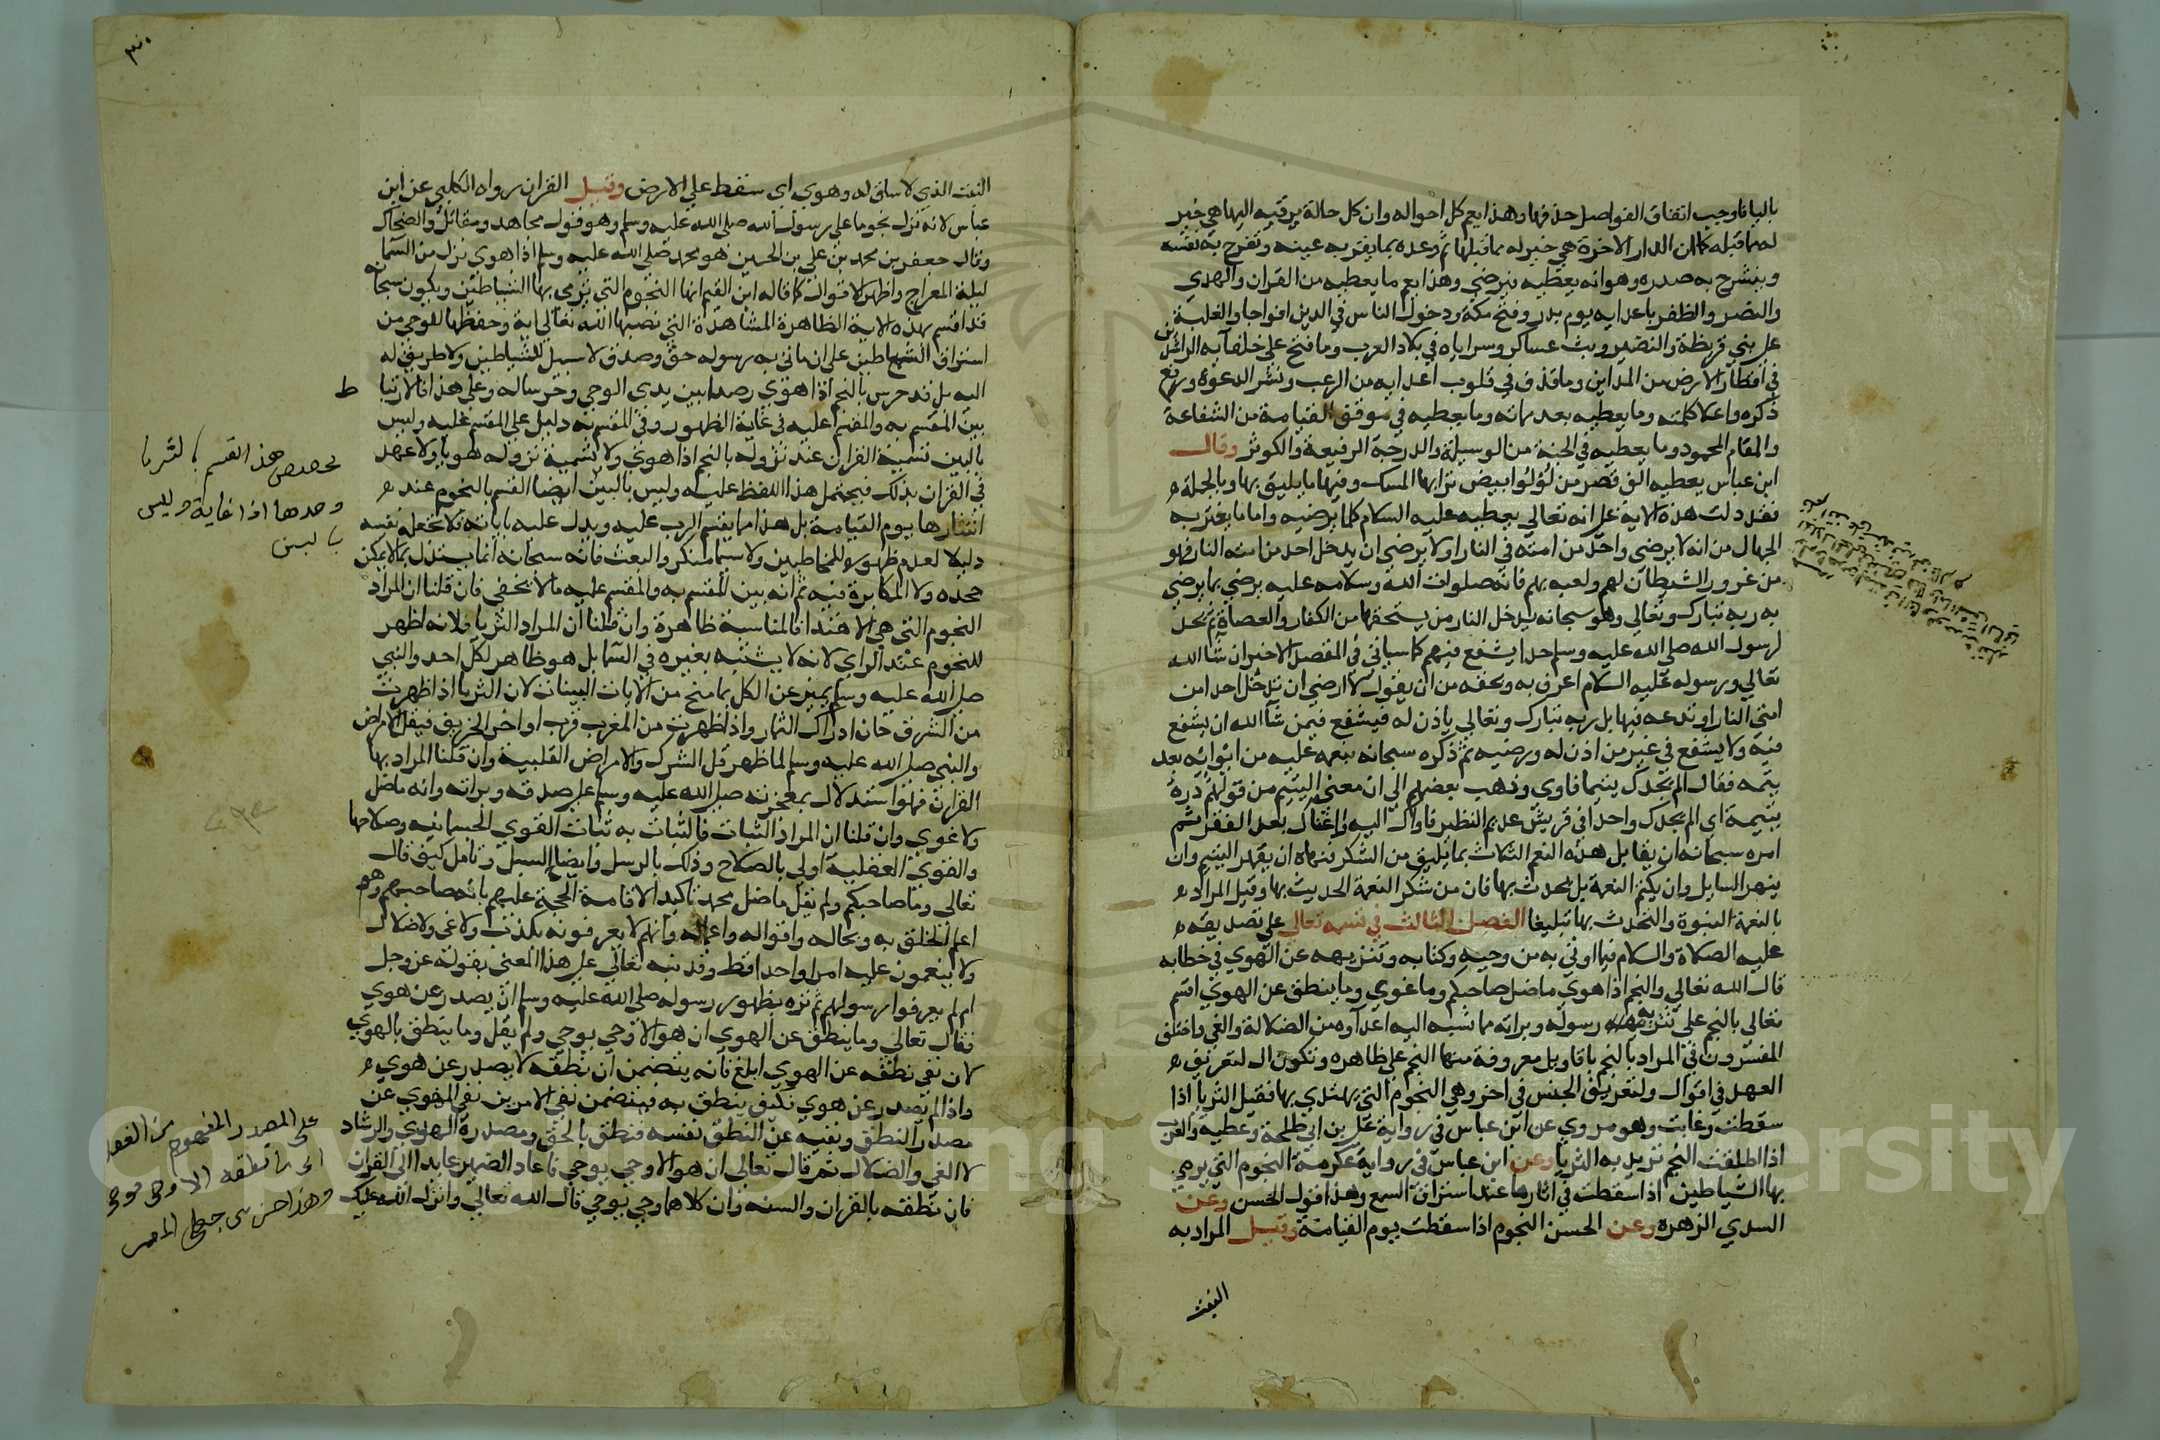 بالباء فاوجب اتفاق الفواصل حذفها وهذا يعم كل احواله وان كل حالة يرقيه اليها هي خير
له مما قبله كما ان الدار الاخرة هي خير له مما قبلها ثم وعده بما يقر به عينه وتفرح به نفسه
وينشرح به صدره وهو انه يعطيه فيرضي وهذا يعم ما يعطيه من القران والهدي
والنصر والظفر باعدايه يوم بدر وفتح مكة ودخول الناس في الدين افواجا والغلبة
علي بني قريظة والنضير وبث عساكره وسراياه في بلاد العرب وما فتح علي خلفآيه الراشدين
في اقطار الارض من المداين وما قذف في قلوب اعدايه من الرعب ونشر الدعوة ورفع
ذكره واعلا كلمته وما يعطيه بعد مماته وما يعطيه في موقف القيامة من الشفاعة
والمقام المحمود وما يعطيه في الجنة من الوسيلة والدرجة الرفيعة والكوثر وقال
ابن عباس يعطيه الف قصر من لؤلوا بيض ترابها المسك وفيها ما يليق بها وبالجملة
فقد دلت هذه الاية علي انه تعالي يعطيه عليه السلام كلما يرضيه واما ما يغتر به
الجهال من انه لا يرضي واحد من امته في النار او لا يرضي ان يدخل احد من امته النار فهو
من غرور الشيطان لهم ولعبه بهم فانه صلوات الله وسلامه عليه يرضي بما يرضي
به ربه تبارك وتعالي وهو سبحانه يدخل النار من يستحقها من الكفار والعصاة ثم يحد
لرسول الله صلي الله عليه وسلم حدا يشفع فيهم كما سياتي في المقصد الاخير ان شآ الله
تعالي ورسوله عليه السلام اعرف به وبحقه من ان يقول لا ارضي ان تدخل احد من
امتي النار او تدعه فيها بل ربه تبارك وتعالي ياذن له فيشفع فيمن شآ الله ان يشفع
فيه ولا يشفع في غير من اذن له ورضيه ثم ذكره سبحانه بنعمه عليه من ايوائه بعد
يتمه فقال الم يجدك يتيما فاوي وذهب بعضهم الي ان معني اليتيم من قولهم درة
يتيمة اي الم يجدك واحدا في قريش عديم النظير فاواك اليه واغناك بعد الفقر ثم
امره سبحانه ان يقابل هذه النعم الثلاث بما يليق من الشكر فنهاه ان يقهر اليتيم وان
ينهر السايل وان يكتم النعمة بل يحدث بها فان من شكر النعمة الحديث بها وقيل المراد
بالنعمة النبوة والتحدث بها تبليغها الفصل الثالث في قسمه تعالي علي تصديقه
عليه الصلاة والسلام فيما اوتي به من وحيه وكتابه وتنزيهه عن الهوي في خطابه
قال الله تعالي والنجم اذا هوي ما ضل صاحبكم وما غوي وما ينطق عن الهوي اقسم
تعالي بالنجم علي تنزيه رسوله وبراته مما نسبه اليه اعدآوه من الضلالة والغي واختلف
المفسرون في المراد بالنجم باقاويل معروفة منها النجم علي ظاهره وتكون ال لتعريف
العهد في اقوال ولتعريف الجنس في اخر وهي النجوم التي يهتدي بها فقيل الثريا اذا
سقطت وغابت وهو مروي عن ابن عباس في رواية علي بن ابي طلحة وعطية والعرب
اذا اطلقت النجم تريد به الثريا وعن ابن عباس في رواية عكرمة النجوم التي يرمي
بها الشياطين اذا سقطت في اثارها عند استراق السمع وهذا قول الحسن وعن
السدي الزهره وعن الحسن النجوم اذا سقطت يوم القيامة وقيل المراد به
النبت
٣٠
النبت الذي لا ساق له وهوي اي سقط علي الارض وقيل القران رواه الكلبي عن ابن
عباس لانه نزل نجوما علي رسول الله صلي الله عليه وسلم وهو قول مجاهد ومقاتل والضحاك
وقال جعفر بن محمد بن علي بن الحسين هو محمد صلي الله عليه وسلم اذا هوي نزل من السما
ليلة المعراج واظهر الاقوال كما قاله ابن القيم انها النجوم التي يرمي بها الشياطين ويكون سبحانه
قد اقسم بهذه الاية الظاهرة المشاهدة التي نصبها الله تعالي اية وحفظا للوحي من
استراق الشياطين علي ان ما اتي به رسوله حق وصدق لا سبيل للشياطين ولا طريق له
اليه بل قد حرس بالنجم اذا هوي رصدا بين يدي الوحي وحرسا له وعلي هذا فالارتباط
بين المقسم به والمقسم عليه في غاية الظهور وفي المقسم به دليل علي المقسم عليه وليس
بالبين تسمية القران عند نزوله بالنجم اذا هوي ولا تسمية نزوله هويا ولا عهد
في القران بذلك فيحتمل هذا اللفظ عليه وليس بالبين ايضا القسم بالنجوم عند
انتثارها يوم القيامة بل هذا مما يقسم الرب عليه ويدل عليه باياته فلا يجعله نفسه
دليلا لعدم ظهوره للمخاطبين ولا سيما منكروا البعث فانه سبحانه انما يستدل بما لا يمكن
جحده ولا المكابرة فيه ثم انه بين المقسم به والمقسم عليه ما لا يخفي فان قلنا ان المراد
النجوم التي هي للاهتدا فالمناسبة ظاهرة وان قلنا ان المراد الثريا فلانه اظهر
للنجوم عند الراي لانه لا يشتبه بغيره في السما بل هو ظاهر لكل احد والنبي
صلي الله عليه وسلم تميز عن الكل بما منح من الايات البينات لان الثريا اذا ظهرت
من الشرق حان ادراك الثمار واذا ظهرت من المغرب قرب اواخر الخريف فيقل الامراض
والنبي صلي الله عليه وسلم لما ظهر قل الشرك والامراض القلبية وان قلنا المراد بها
القران فهو استدلال بمعجزته صلي الله عليه وسلم علي صدقه وبراته وانه ما ضل
ولا غوي وان قلنا ان المراد النبات فالنبات به ثبات القوي الجسمانيه وصلاحها
والقوي العقلية اولي بالصلاح وذلك بالرسل وايضاح السبل وتامل كيف قال
تعالي وما صاحبكم ولم يقل ما ضل محمد تاكيدا لاقامة الحجة عليهم بانه صاحبهم وهم
اعلم الخلق به وبحاله واقواله واعماله وانهم لا يعرفونه بكذب ولا غي ولا ضلال
ولا ينقمون عليه امرا واحدا قط وقد نبه تعالي علي هذا المعني بقوله عز وجل
ام لم يعرفوا رسولهم ثم نزه نطق رسوله صلي الله عليه وسلم ان يصدر عن هوي
فقال تعالي وما ينطق عن الهوي ان هو الا وحي يوحي ولم يقل وما ينطق بالهوي
لان نفي نطقه عن الهوي ابلغ فانه يتضمن ان نطقه لا يصدر عن هوي
واذا لم يصدر عن هوي فكيف ينطق به فيتضمن نفي الامرين نفي الهوي عن
مصدر النطق ونفيه عن النطق نفسه فنطقه بالحق ومصدره الهدي والرشاد
لا الغي والضلال ثم قال تعالي ان هو الا وحي يوحي فاعاد الضمير عايدا الي القران
فان نطقه بالقران والسنه وان كلاهما وحي يوحي قال الله تعالي وانزل الله عليك
تخصيص هذا القسم بالثريا
وحدها اذا غابت وليس
بالبين
علي المصدر المفهوم من الفعل
اي ما نطقه الا وحي يوحي
وهذا احسن من جعل الضمير